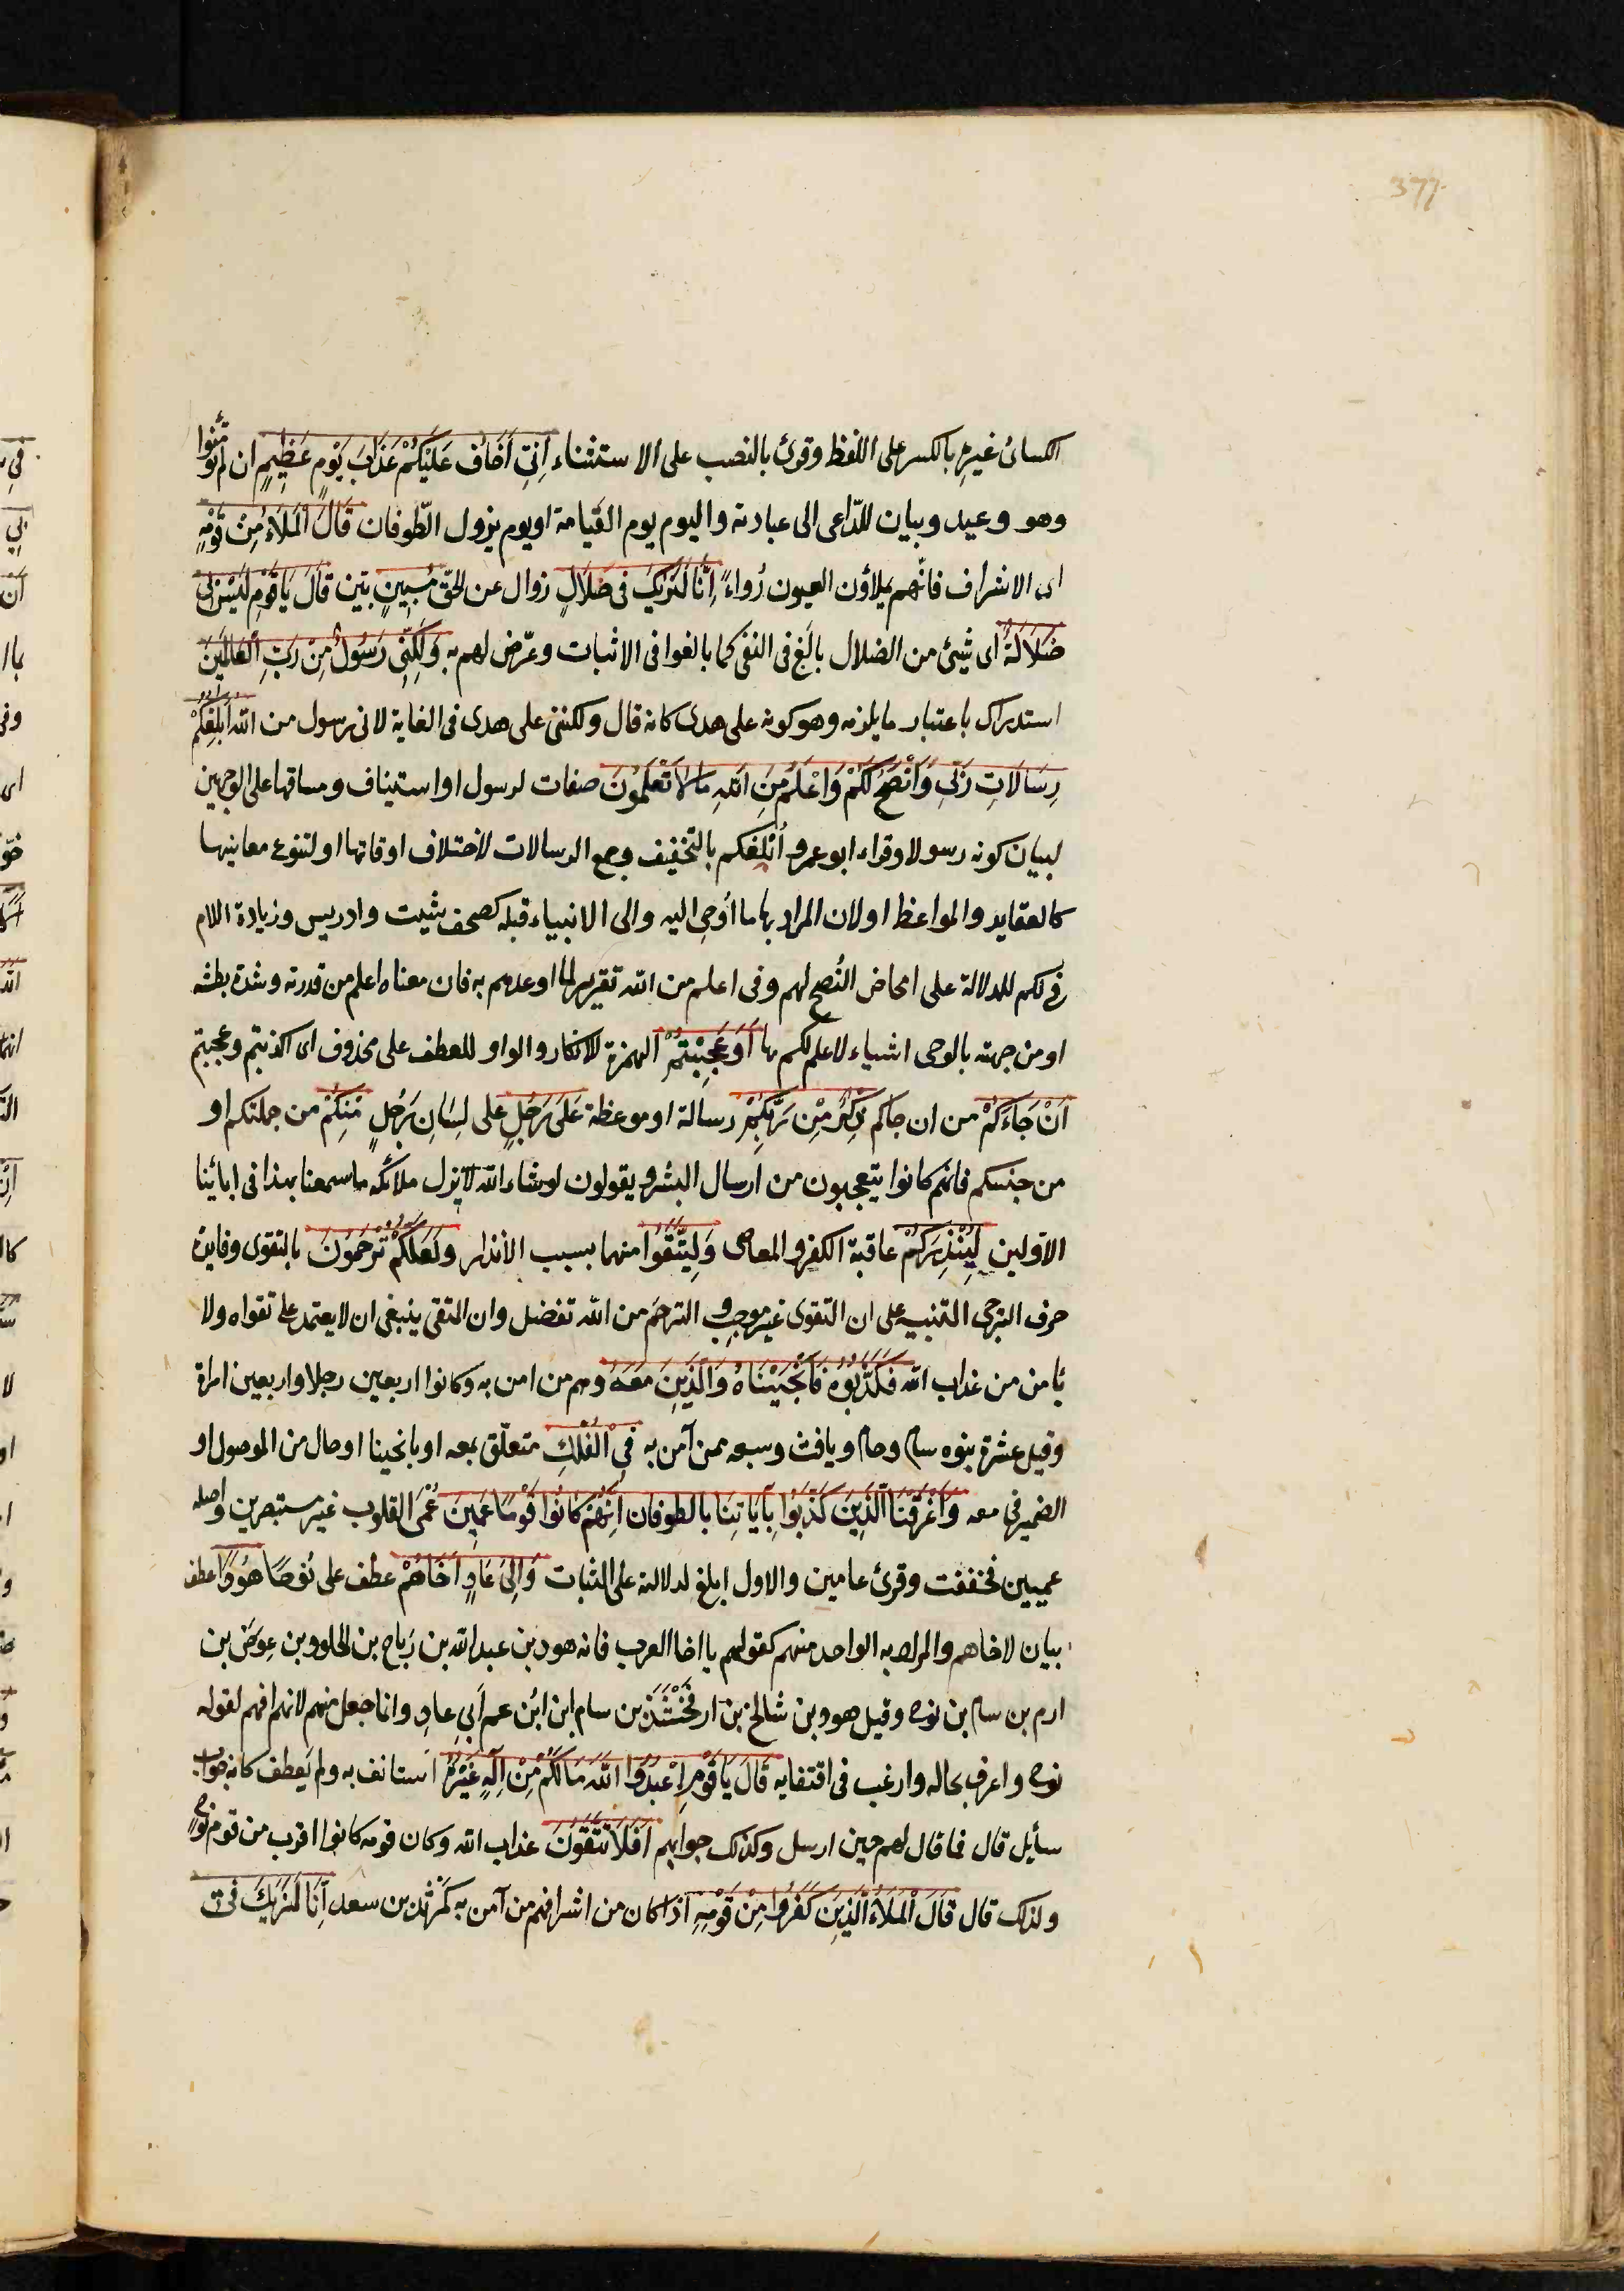 377
الكسائى غيرِه بالكسر على اللفظ وقرئ بالنصب على الاستثناء اِنّى اَخَافُ عَلَيْكُمْ عَذَابَ يَوْمٍ عَظِيمٍ ان لم تؤمنوا
وهو وعيد وبيان للدّاعى الى عبادته واليوم يوم القيامة او يوم نزول الطّوفان قَالَ الْمَلَاءُ مِنْ قَوْمِهِ
اى الاشراف فانّهم يملاؤن العيون رُواءً اِنَّا لَنَرٰيكَ فى ضَلَالٍ زوال عن الحقّ مُبِينٍ بيّن قَالَ يَا قَوْمِ لَيْسَ بى
ضَلَالَةٌ اى شيئ من الضلال بالَغ فى النفى كما بالغوا فى الاثبات وعرّض لهم به وَلَكِنّى رَسُولٌ مِنْ رَبِّ الْعَالَمِينَ
استدراك باعتبار ما يلزمه وهو كونه على هدى كانه قال ولكننى على هدى فى الغاية لانى رسول من الله اُبَلِّغُكُمْ
رِسَالَاتِ رَبّى وَاَنْصَحُ لَكُمْ وَاَعْلَمُ مِنَ اللهِ مَا لَا تَعْلَمُونَ صفات لرسول او استيناف ومساقها على الوجهين
لبيان كونه رسولا وقراء ابو عمرو اُبْلِغكم بالتخفيف وجمع الرسالات لاختلاف اوقاتها او لتنوع معانيها
كالعقايد والمواعظ او لان المراد بها ما اُوحِى اليه والى الانبياء قبله كصحف شيث وادريس وزيادة اللام
فى لكم للدلالة على امحاض النُصح لهم وفى اعلم من الله تقرير لما اوعدهم به فان معناه اعلم من قدرته وشدة بطشه
او من جهته بالوحى اشياء لا علم لكم بها اَوَعَجِبْتُمْ الهمزة للانكار والواو للعطف على محذوف اى اكذبتم وعجبتم
اَنْ جَاءَكُمْ من ان جاكم ذِكْرٌ مِنْ رَبِّكُمْ رسالة او موعظة عَلَى رَجُلٍ على لِسَانِ رَجُلٍ مِنكُمْ من جملتكم او
من جنسكم فانهم كانوا يتعجبون من ارسال البشر ويقولون لو شاء الله لانزل ملائكة ما سمعنا بهذا فى ابائنا
الاولين لِيُنْذِرَكُمْ عاقبة الكفر والمعاصى وَلِيَتَّقُوا منهما بسبب الانذار ولَعَلَّكُمْ تُرْحَمُونَ بالتقوى وفايدة
حرف الترجى التنبيه على ان التقوى غير موجب والترحّم من الله تفضل وان المتقى ينبغى ان لا يعتمد على تقواه ولا
يأمن من عذاب الله فَكَذَّبُوهُ فَاَنْجَيْنَاهُ وَالَّذِينَ مَعَهُ وهم من امن به وكانوا اربعين رجلا واربعين امراة
وقيل عشرة بنوه سام وحام ويافث وسبعه ممن آمن به فِى الْفُلْكِ متعلّق بمعه او بانجينا او حال من الموصول او
الضمير فى معه وَاَغْرَقْنَا الَّذِينَ كَذَّبُوا بِآيَاتِنَا بالطوفان اِنَّهُمْ كَانُوا قَوْمًا عَمِينَ عُمْىَ القلوب غير مستبصرين واصله
عميين فخففت وقرئ عامين والاول ابلغ لدلالته على الثبات وَاِلَى عَادٍ اَخَاهُمْ عطف على نُوحًا هُودًا عطف
بيان لاخاهم والمراد به الواحد منهم كقولهم يا اخا العرب فانه هود بن عبد الله بن رَباح بن الخلود بن عِوَض بن
ارم بن سام بن نوح وقيل هود بن شالخ بن ارفَخْشَذ بن سام ابن ابن عم اَبى عادٍ وانما جعل منهم لانهم افهم لقوله
نوح واعرف بحاله وارغب فى اقتفايه قَالَ يَا قَوْمِ اعْبُدُوا اللهَ مَا لَكُمْ مِنْ اِلَهٍ غَيْرُهُ استانف به ولم يعطف كانه جواب
سأيل قال فما قال لهم حين ارسل وكذلك جوابهم اَفَلَا تَتَّقُونَ عذاب الله وكان قومه كانوا اقرب من قوم نوح
ولذلك قال قَالَ الْمَلَاءُ الَّذِينَ كَفَرُوا مِنْ قَوْمِهِ اذ كان من اشرافهم من آمن به كمَرْثَد بن سعد اِنَّا لَنَرٰيكَ فى